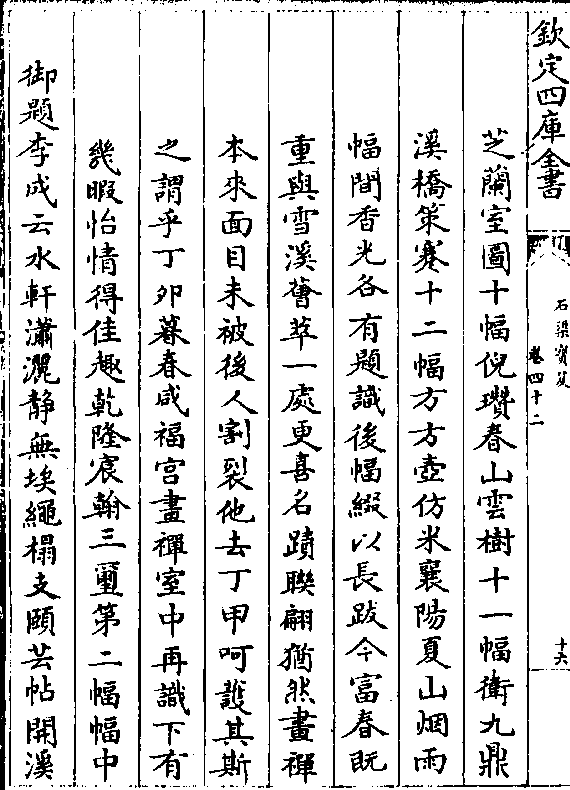 欽定四庫全書
石渠寳笈
卷四十二
十六
芝蘭室圖十幅倪瓚春山雲樹十一幅衛九鼎
溪橋策蹇十二幅方方壺仿米襄陽夏山烟雨
幅間香光各有題識後幅綴以長跋今富春既
重與雪溪薈萃一處更喜名蹟聯翩猶然畫禪
本來面目未被後人割裂他去丁甲呵護其斯
之謂乎丁卯暮春咸福宫畫禪室中再識下有
幾暇怡情得佳趣乾隆宸翰三璽第二幅幅中
御題李成云水軒瀟灑静無埃繩榻支頤芸帖開溪